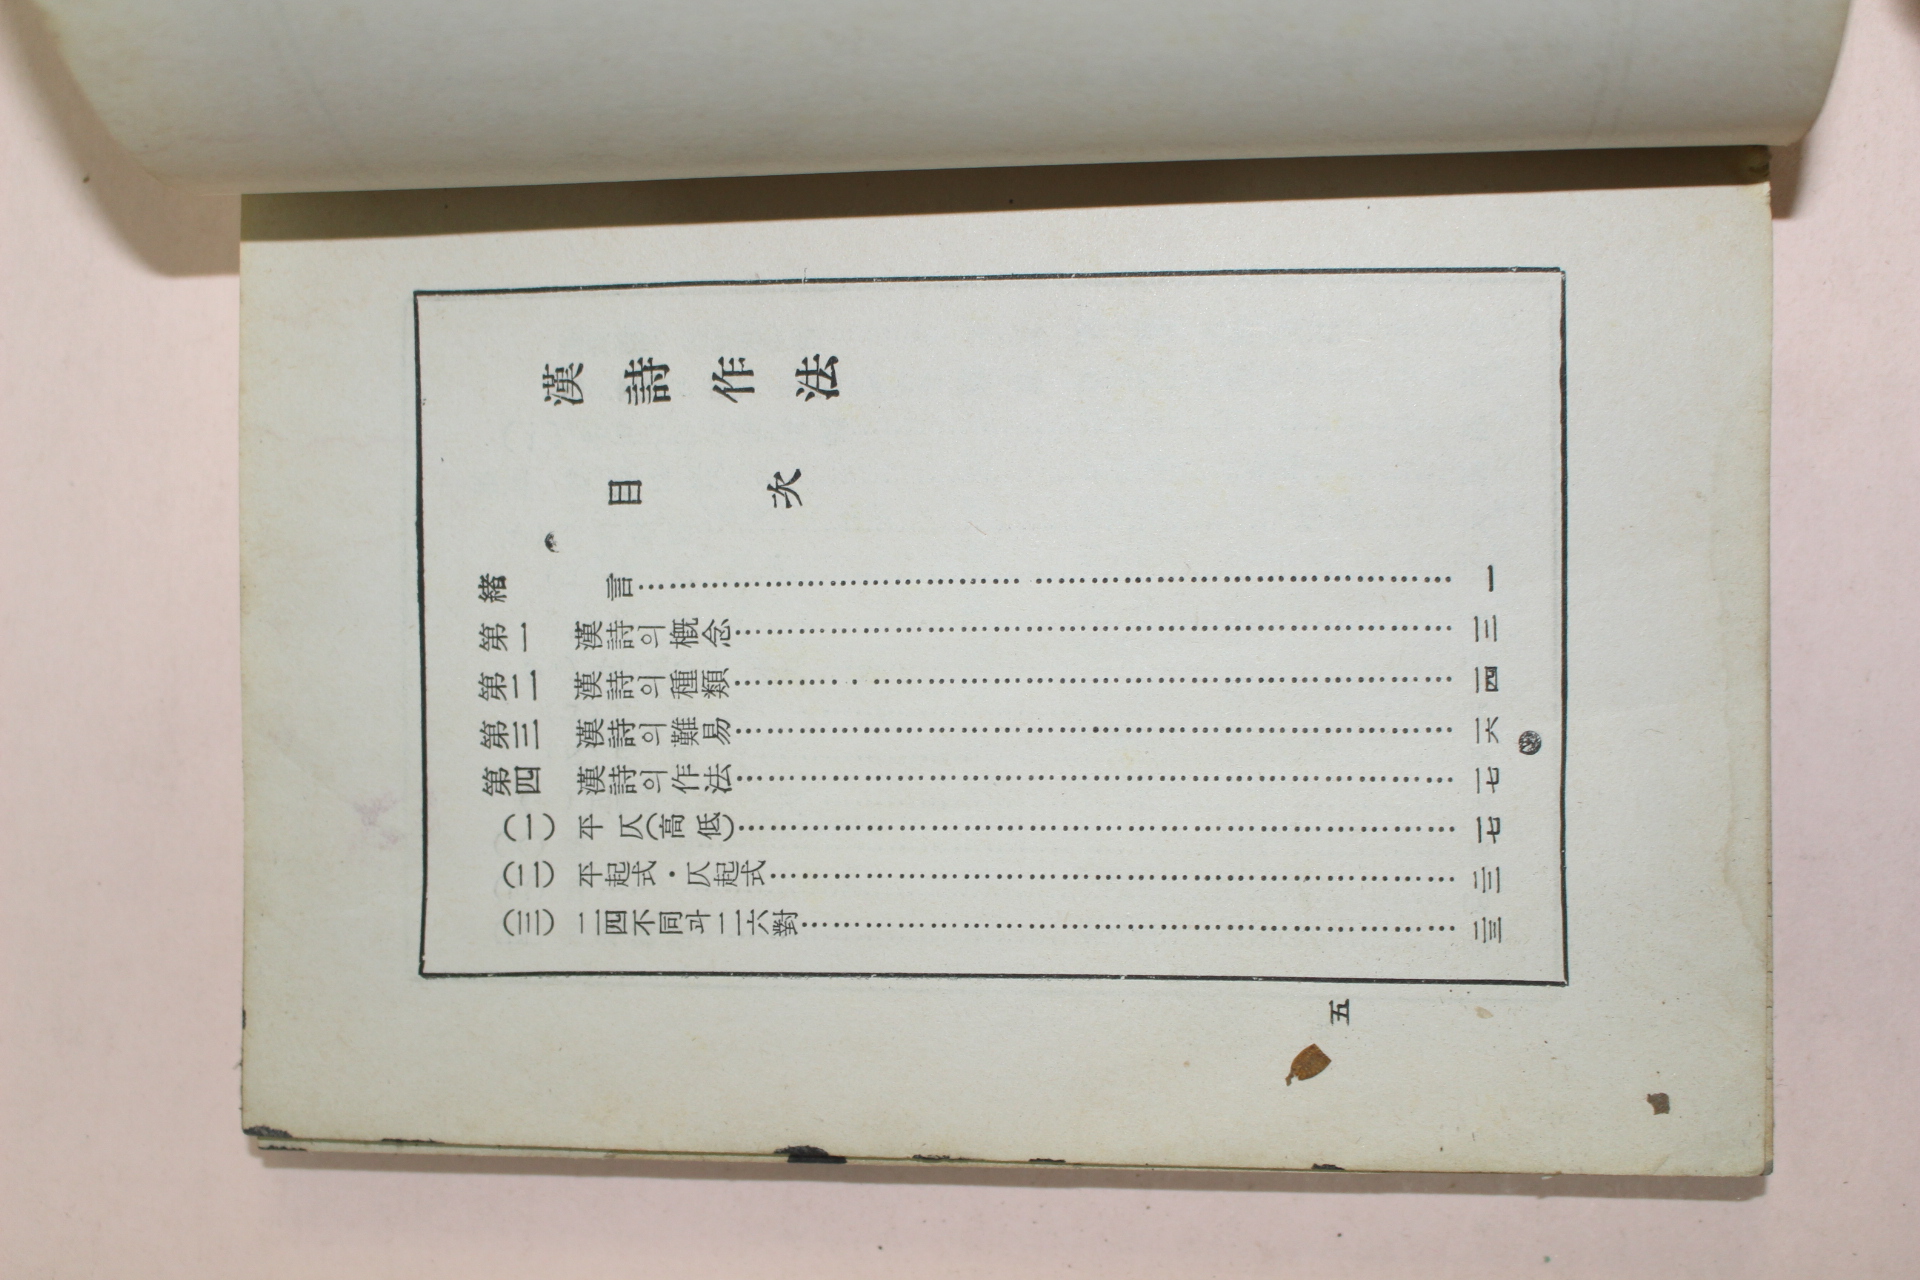 漢詩作法
目次
緒言……一
第一 漢詩의 概念……三
第二 漢詩의 種類……一四
第三 漢詩의 難易……一六
第四 漢詩의 作法……一七
(一) 平仄(高低)……一七
(二) 平起式・仄起式……二二
(三) 二四不同과 二六對……二三
五